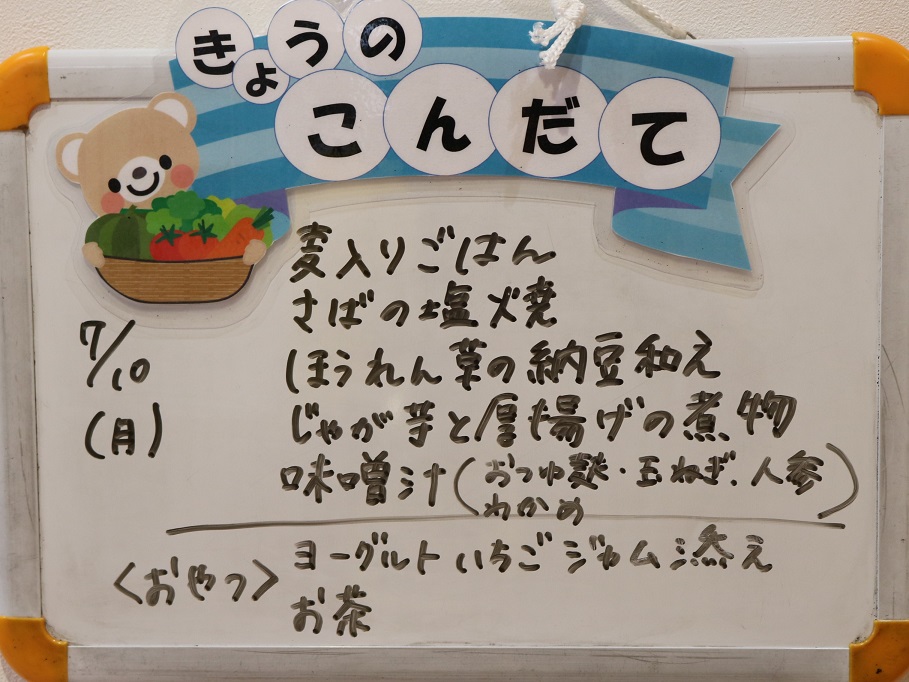 きょうの
こんだて
7/10
(月)
麦入りごはん
さばの塩焼
ほうれん草の納豆和え
じゃが芋と厚揚げの煮物
味噌汁(おつゆ麩・玉ねぎ、人参
わかめ)
<おやつ>
ヨーグルトいちごジャム添え
お茶